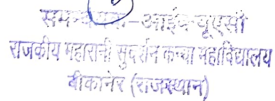 समन्वयक-आईक्यूएसी
राजकीय महारानी सुदर्शन कन्या महाविद्यालय
बीकानेर (राजस्थान)